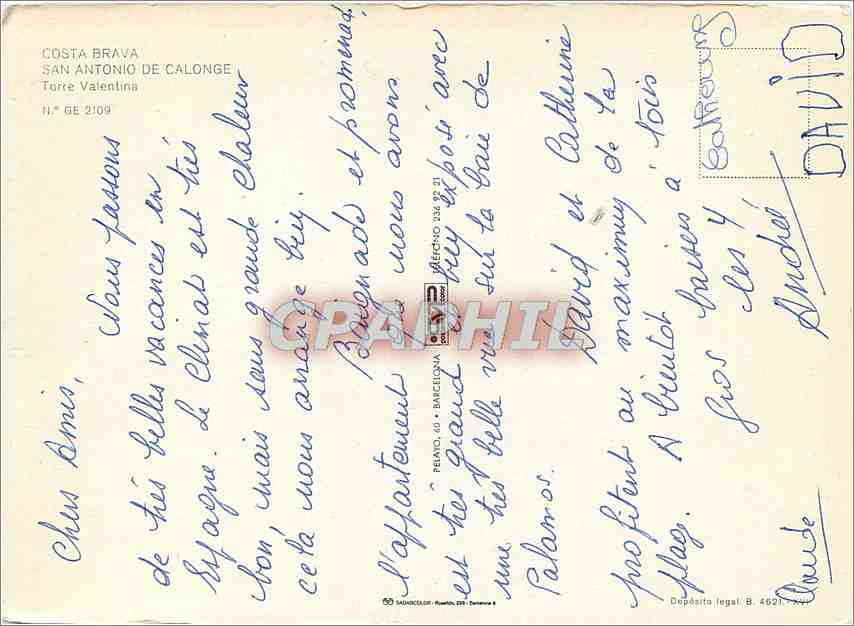 COSTA BRAVA
SAN ANTONIO DE CALONGE
Torre Valentina
N.° GE 2109
Chers Amis,
Nous passons
de très belles vacances en
Espagne. Le Climat est très
bon, mais sans grande chaleur
cela nous arrange bien.
Baignade et promenad.
l'appartement que nous avons
est très grand bien exposé avec
une très belle vue sur la baie de
Palamos.
David et Catherine
profitent au maximum de la
plag. A bientôt à tois
Gros baisers
les 4
Claude
Andreé
Catherine
DAVID
PELAYO, 60 • BARCELONA
TELÉFONO 236 92 21
CPAPHIL
SADAGCOLOR - Rosellón, 299 - Barcelona
Depósito legal. B. 4621-XVI